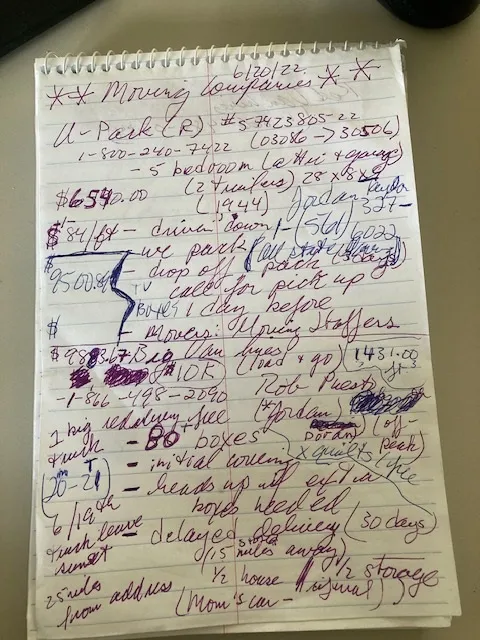 6/20/22
** Moving Companies **
U-Pack (R) #57423805-22
1-800-240-7422 (03086 -> 30506)
- 5 bedroom (attic + garage)
(2 trailers) 28 x 8 x 9
$6540.00 (1944) Jordan
$84/ft - driver down 1-(561) 327-
we pack 6022
$9500 - drop off pack (3 days)
call for pick up
TV Boxes 1 day before
$ - Movers: Moving Staffers
$9883.67 Big Van lines (load & go) 1431.00 ft³
$10K Rob Priest
-1-866-498-2090 (*Jordan)
1 big truck - 80 boxes (off-peak)
- initial x quilts (free
(20-21) - heads up if extra
6/19th boxes needed
truck leave sunset - delayed delivery (30 days)
(15 miles away)
25 miles from address 1/2 house 1/2 storage
(Mom's car -